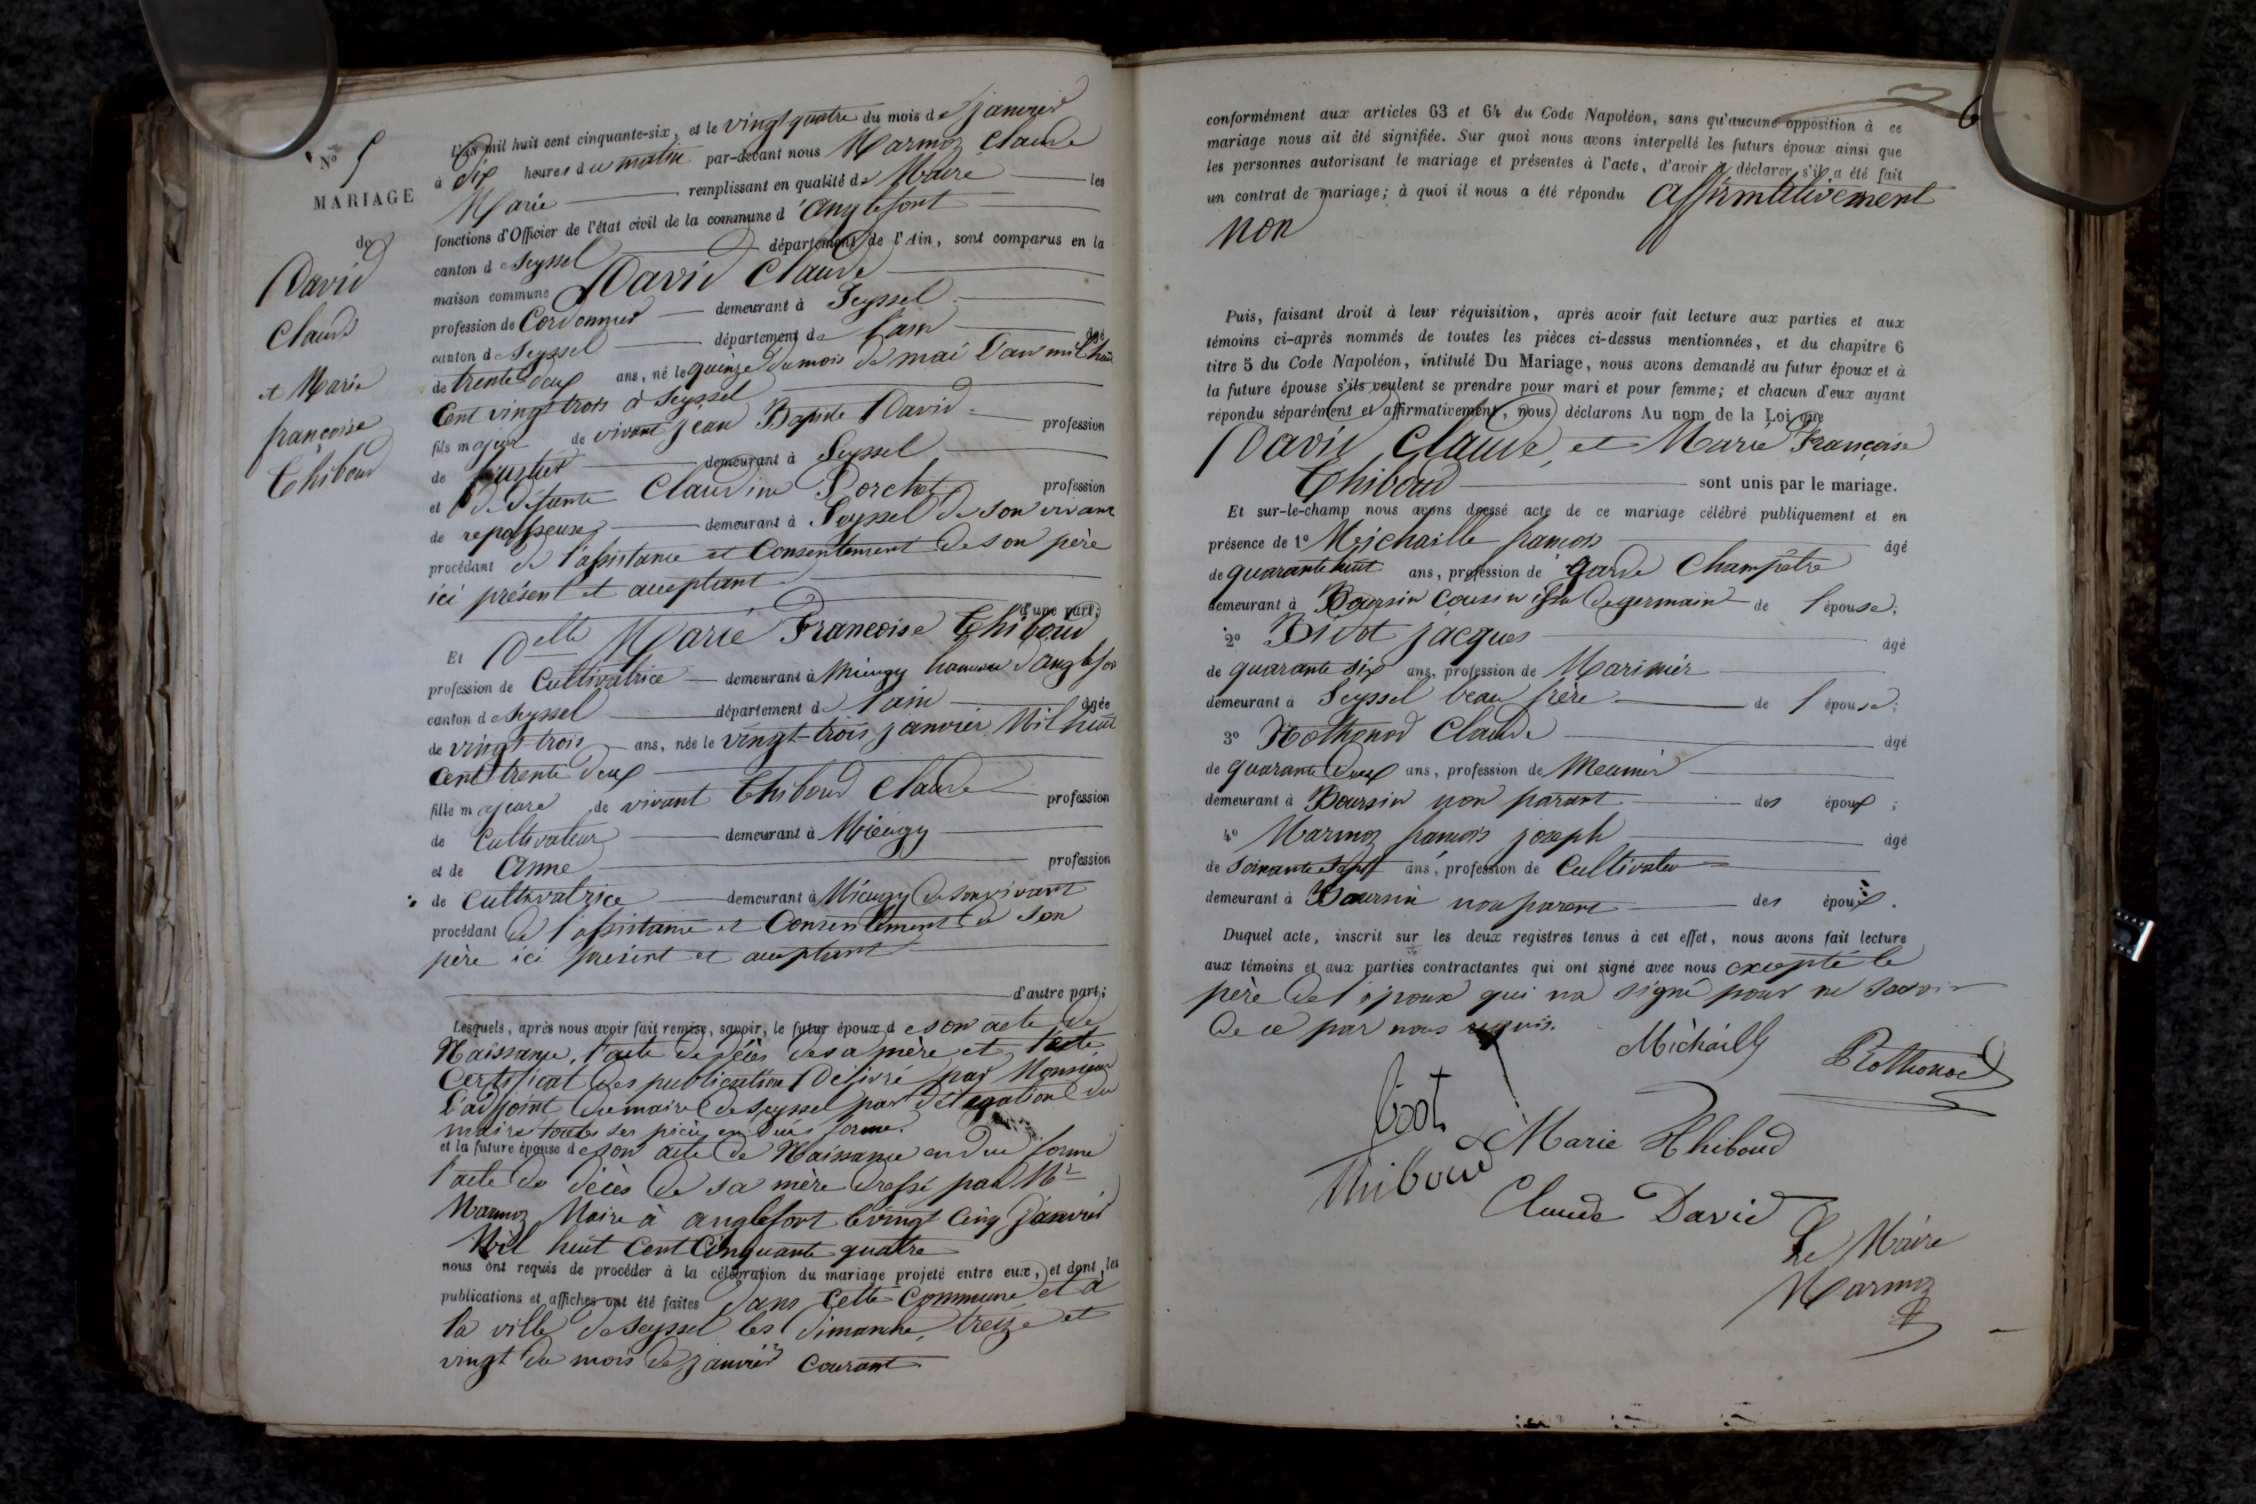 N° 5
MARIAGE
de
David
Claude
et Marie
françoise
Thiboud
L'an mil huit cent cinquante-six, et le vingt quatre du mois de janvier
à dix heures du matin par-devant nous Marmoz Claude
Marie remplissant en qualité de Maire les
fonctions d'Officier de l'état civil de la commune d'anglefort
canton de Seyssel département de l'Ain, sont comparus en la
maison commune David Claude
profession de Cordonnier demeurant à Seyssel
canton de Seyssel département de l'ain âgé
de trente deux ans, né le quinze du mois de mai l'an mil huit
Cent vingt trois à Seyssel
fils majeur de vivant jean Baptiste David profession
de demeurant à Seyssel
et de défunte Claudine Porchet profession
de repasseuse demeurant à Seyssel de son vivant
procédant de l'assistance et Consentement de son père
ici présent et acceptant
d'une part;
Et Delle Marie Francoise Thiboud
profession de Cultivatrice demeurant à Mieugy hameau d'anglefort
canton de Seyssel département de l'ain âgée
de vingt trois ans, née le vingt-trois janvier Mil huit
cent trente deux
fille majeure de vivant Thiboud Claude profession
de Cultivateur demeurant à Mieugy
et de Anne profession
de Cultivatrice demeurant à Mieugy de son vivant
procédant de l'assistance et Consentement de son
père ici présent et acceptant
d'autre part;
Lesquels, après nous avoir fait remise, savoir, le futur époux de son acte de
Naissance, l'acte de décès de sa mère et
Certificat des publication Délivré par Monsieur
L'adjoint du maire de Seyssel par délégation du
maire toutes ses pièces en dues forme.
et la future épouse de son acte de Naissance en due forme
l'acte de décès de sa mère dressé par Mr
Marmoz Maire à anglefort le vingt Cinq Janvier
Mil huit Cent Cinquante quatre
nous ont requis de procéder à la célébration du mariage projeté entre eux, et dont les
publications et affiches ont été faites dans Cette Commune et à
la ville de Seyssel les dimanche treize et
vingt du mois de janvier courant
6
conformément aux articles 63 et 64 du Code Napoléon, sans qu'aucune opposition à ce
mariage nous ait été signifiée. Sur quoi nous avons interpellé les futurs époux ainsi que
les personnes autorisant le mariage et présentes à l'acte, d'avoir à déclarer s'il a été fait
un contrat de mariage; à quoi il nous a été répondu affirmtitivement
non
Puis, faisant droit à leur réquisition, après avoir fait lecture aux parties et aux
témoins ci-après nommés de toutes les pièces ci-dessus mentionnées, et du chapitre 6
titre 5 du Code Napoléon, intitulé Du Mariage, nous avons demandé au futur époux et à
la future épouse s'ils veulent se prendre pour mari et pour femme; et chacun d'eux ayant
répondu séparément et affirmativement, nous déclarons Au nom de la Loi que
David Claude, et Marie Françoise
Thiboud sont unis par le mariage.
Et sur-le-champ nous avons dressé acte de ce mariage célébré publiquement et en
présence de 1° Meichaille françois âgé
de quarante huit ans, profession de garde Champêtre
demeurant à Boursin Cousin issu de germain de l'épouse;
2° Bizot jacques âgé
de quarante six ans, profession de Marinier
demeurant à Seyssel beau frère de l'épouse;
3° Rothonod Claude âgé
de quarante deux ans, profession de Meunier
demeurant à Boursin non parant des époux;
4° Marmoz françois joseph âgé
de soixante sept ans, profession de Cultivateur
demeurant à Boursin non parant des époux.
Duquel acte, inscrit sur les deux registres tenus à cet effet, nous avons fait lecture
aux témoins et aux parties contractantes qui ont signé avec nous excepté le
père de l'époux qui na signé pour ne savoir
de ce par nous requis.
Michailly
Rothonod
Bizot
Marie Thiboud
Thiboud
Claude David
Le Maire
Marmoz